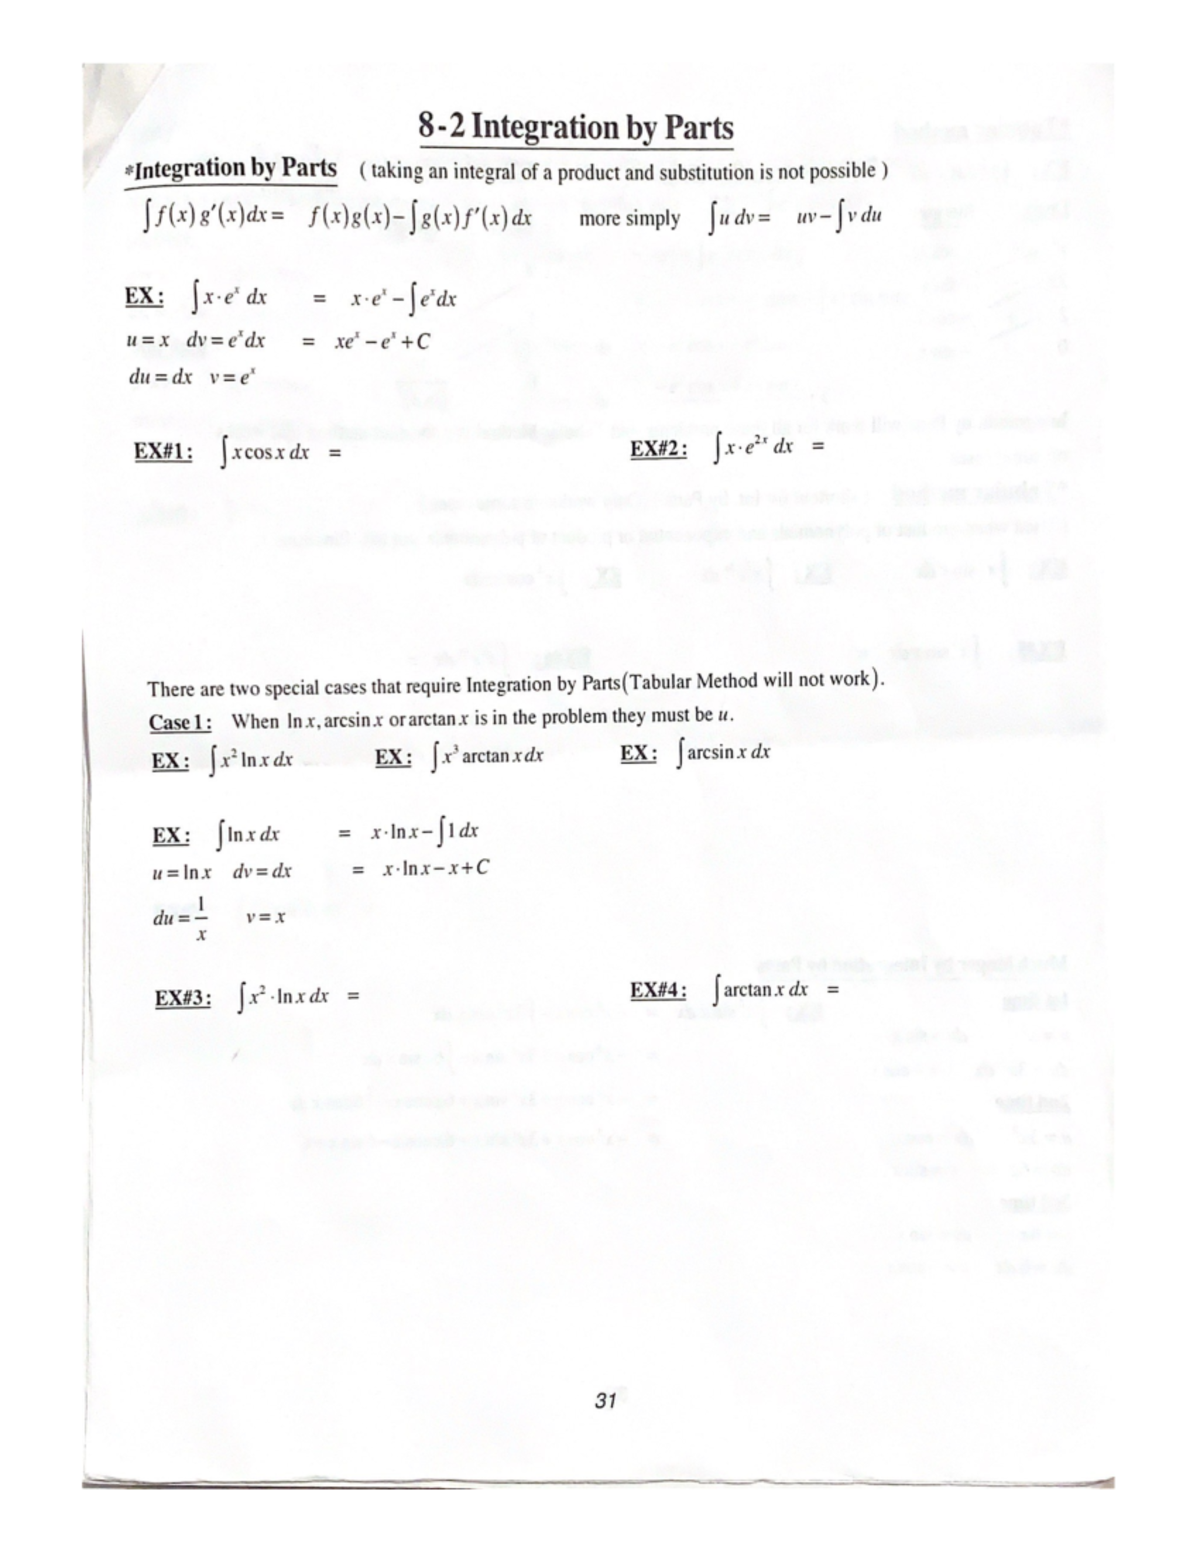 8-2 Integration by Parts
*Integration by Parts ( taking an integral of a product and substitution is not possible )
∫f(x)g′(x)dx = f(x)g(x)−∫g(x)f′(x)dx more simply ∫u dv = uv−∫v du
EX: ∫x·eˣ dx = x·eˣ−∫eˣdx
u=x dv=eˣdx = xeˣ−eˣ+C
du=dx v=eˣ
EX#1: ∫xcosx dx = EX#2: ∫x·e²ˣ dx =
There are two special cases that require Integration by Parts(Tabular Method will not work).
Case1: When lnx,arcsinx or arctanx is in the problem they must be u.
EX: ∫x² lnx dx EX: ∫x³ arctanxdx EX: ∫arcsinx dx
EX: ∫lnx dx = x·lnx−∫1dx
u=lnx dv=dx = x·lnx−x+C
du=1/x v=x
EX#3: ∫x²·lnx dx = EX#4: ∫arctanx dx =
31